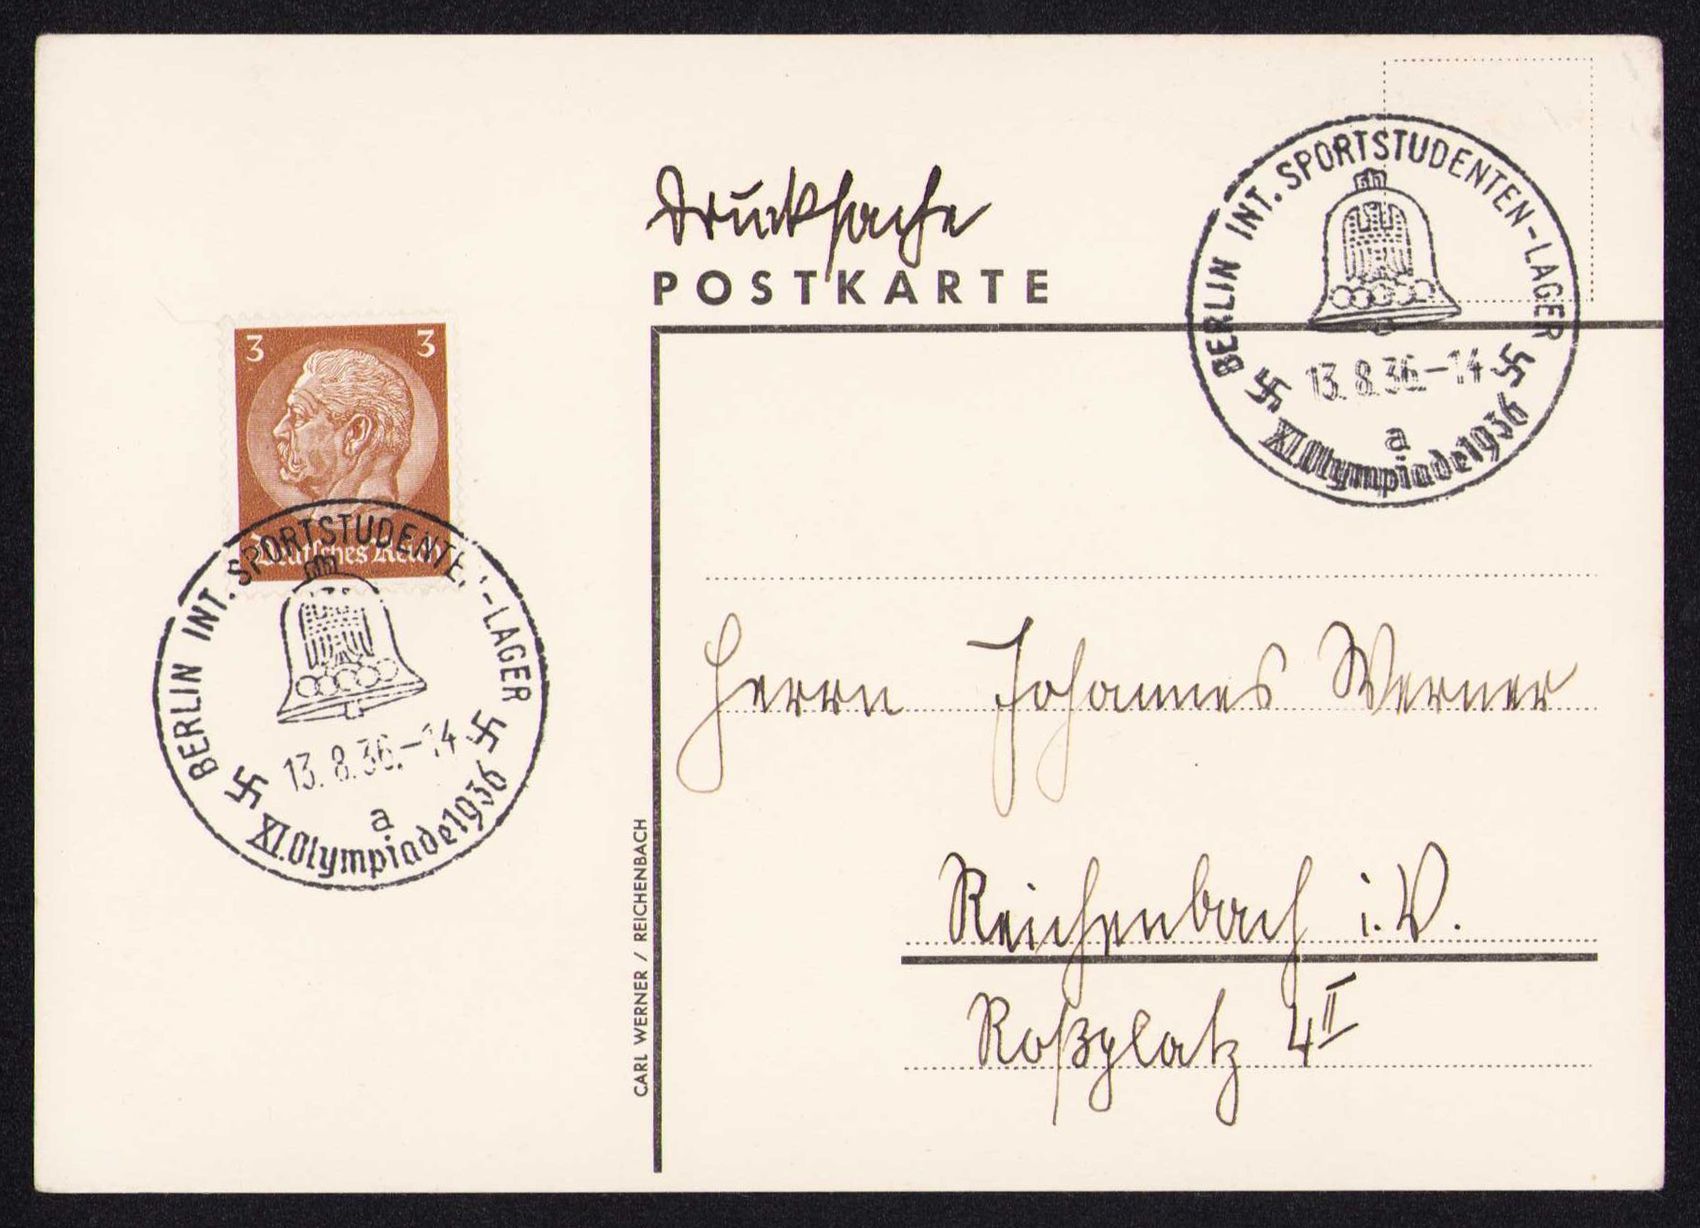 Drucksache
POSTKARTE
BERLIN INT. SPORTSTUDENTEN-LAGER
13.8.36.-14
a
XI. Olympiade 1936
3 3
Deutsches Reich
BERLIN INT. SPORTSTUDENTE.'-LAGER
13.8.36.-14
a
XI. Olympiade 1936
Herrn Johannes Werner
Reichenbach i. V.
Roßplatz 4 II
CARL WERNER / REICHENBACH